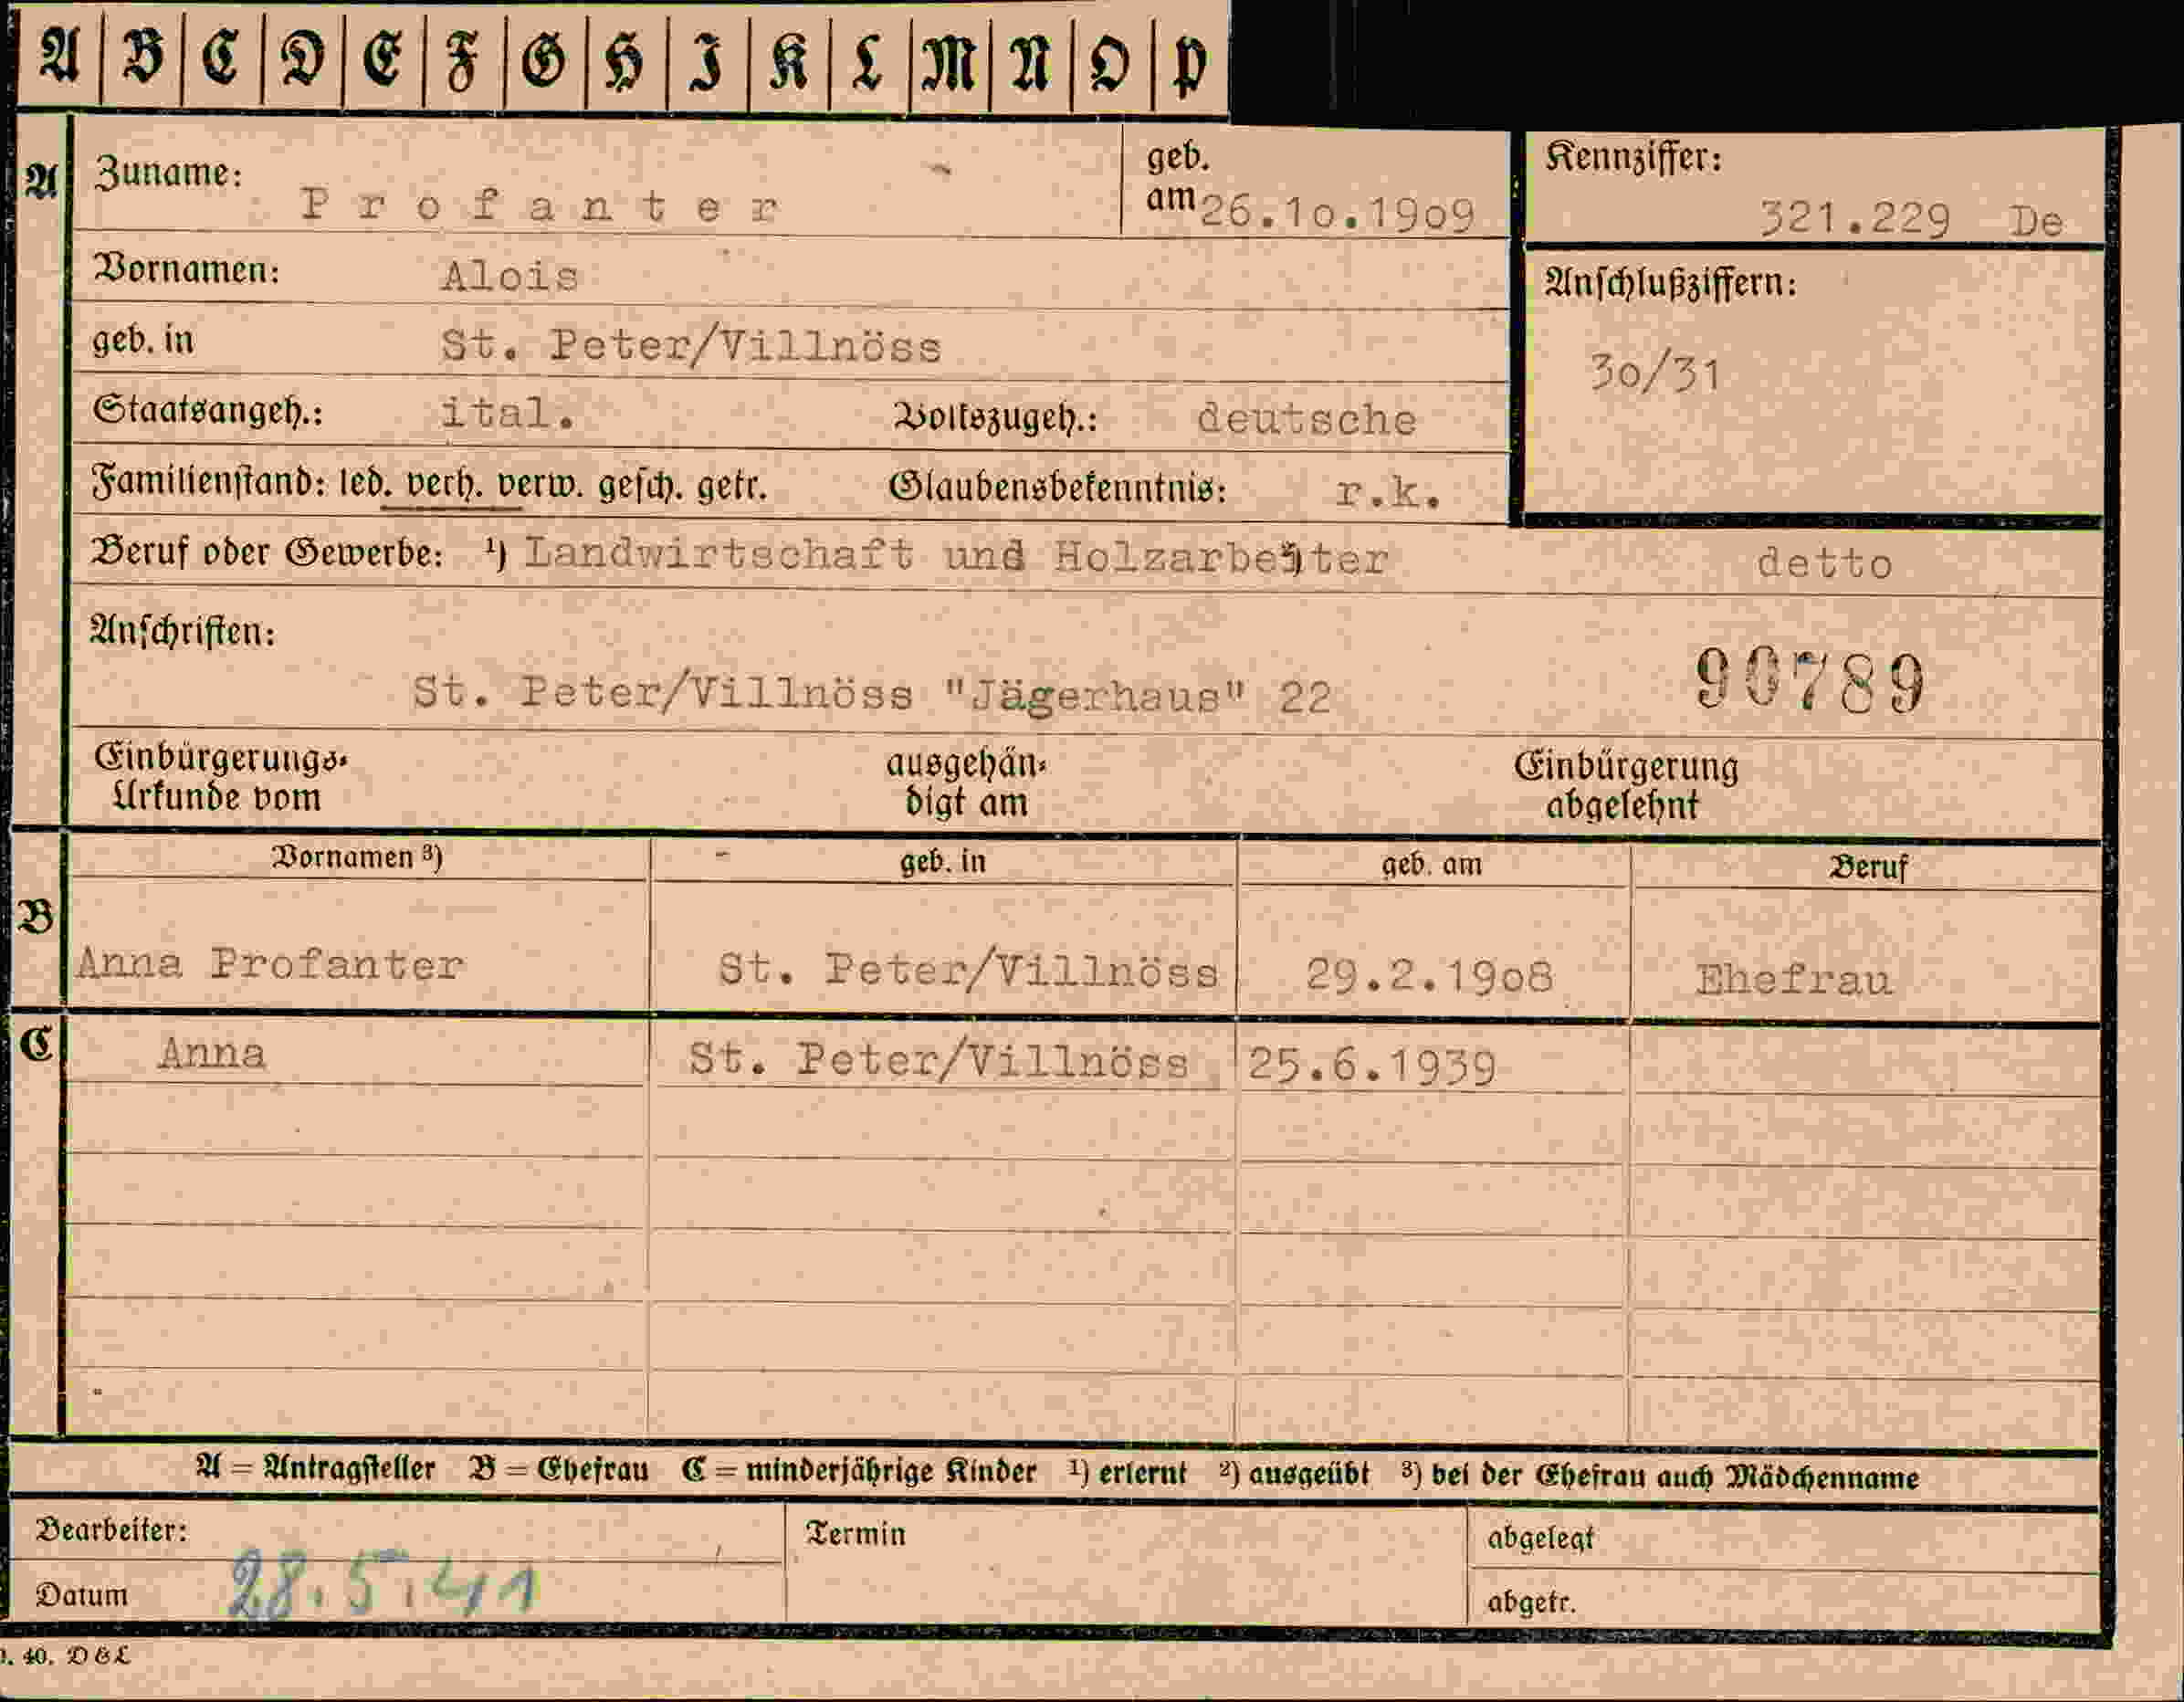 A B C D E F G H I K L M N O P
A Zuname: Profanter geb. am 26.10.1909 Kennziffer: 321.229 De
Vornamen: Alois Anschlußziffern:
geb. in St. Peter/Villnöss 30/31
Staatsangeh.: ital. Volkszugeh.: deutsche
Familienstand: led. verh. verw. gesch. getr. Glaubensbekenntnis: r.k.
Beruf oder Gewerbe: ¹) Landwirtschaft und Holzarbeiter detto
Anschriften:
St. Peter/Villnöss "Jägerhaus" 22 90789
Einbürgerungs- ausgehän- Einbürgerung
Urkunde vom digt am abgelehnt
Vornamen ³) geb. in geb. am Beruf
B
Anna Profanter St. Peter/Villnöss 29.2.1908 Ehefrau
C Anna St. Peter/Villnöss 25.6.1939
A = Antragsteller B = Ehefrau C = minderjährige Kinder ¹) erlernt ²) ausgeübt ³) bei der Ehefrau auch Mädchenname
Bearbeiter: Termin abgelegt
Datum 28.5.41 abgetr.
40. D & L